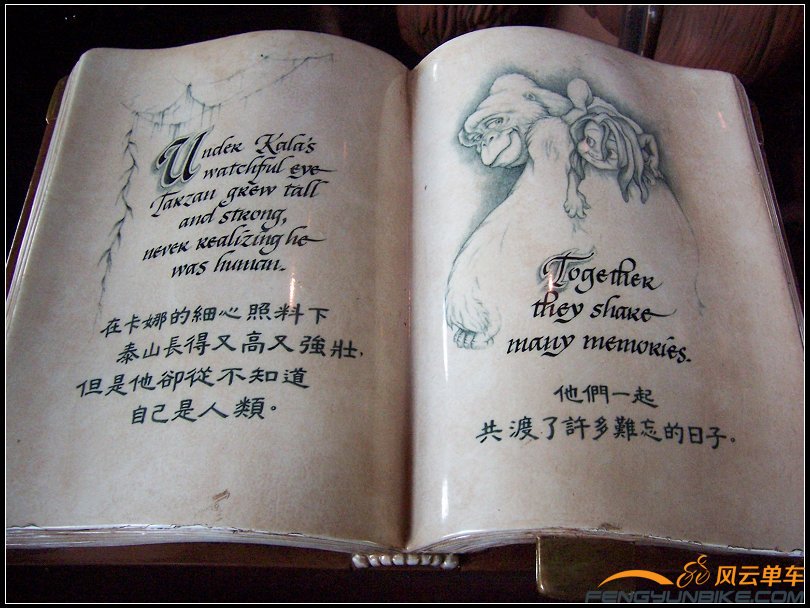 Under Kala's
watchful eye
Tarzan grew tall
and strong,
never realizing he
was human.
在卡娜的細心照料下
泰山長得又高又強壯,
但是他卻從不知道
自己是人類。
Together
they share
many memories.
他們一起
共渡了許多難忘的日子。
风云单车
FENGYUNBIKE.COM